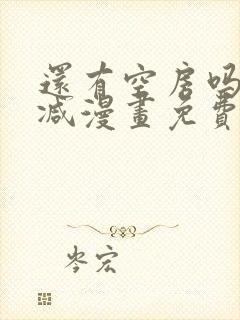 還有空房吗
减漫畫免費
岑宏